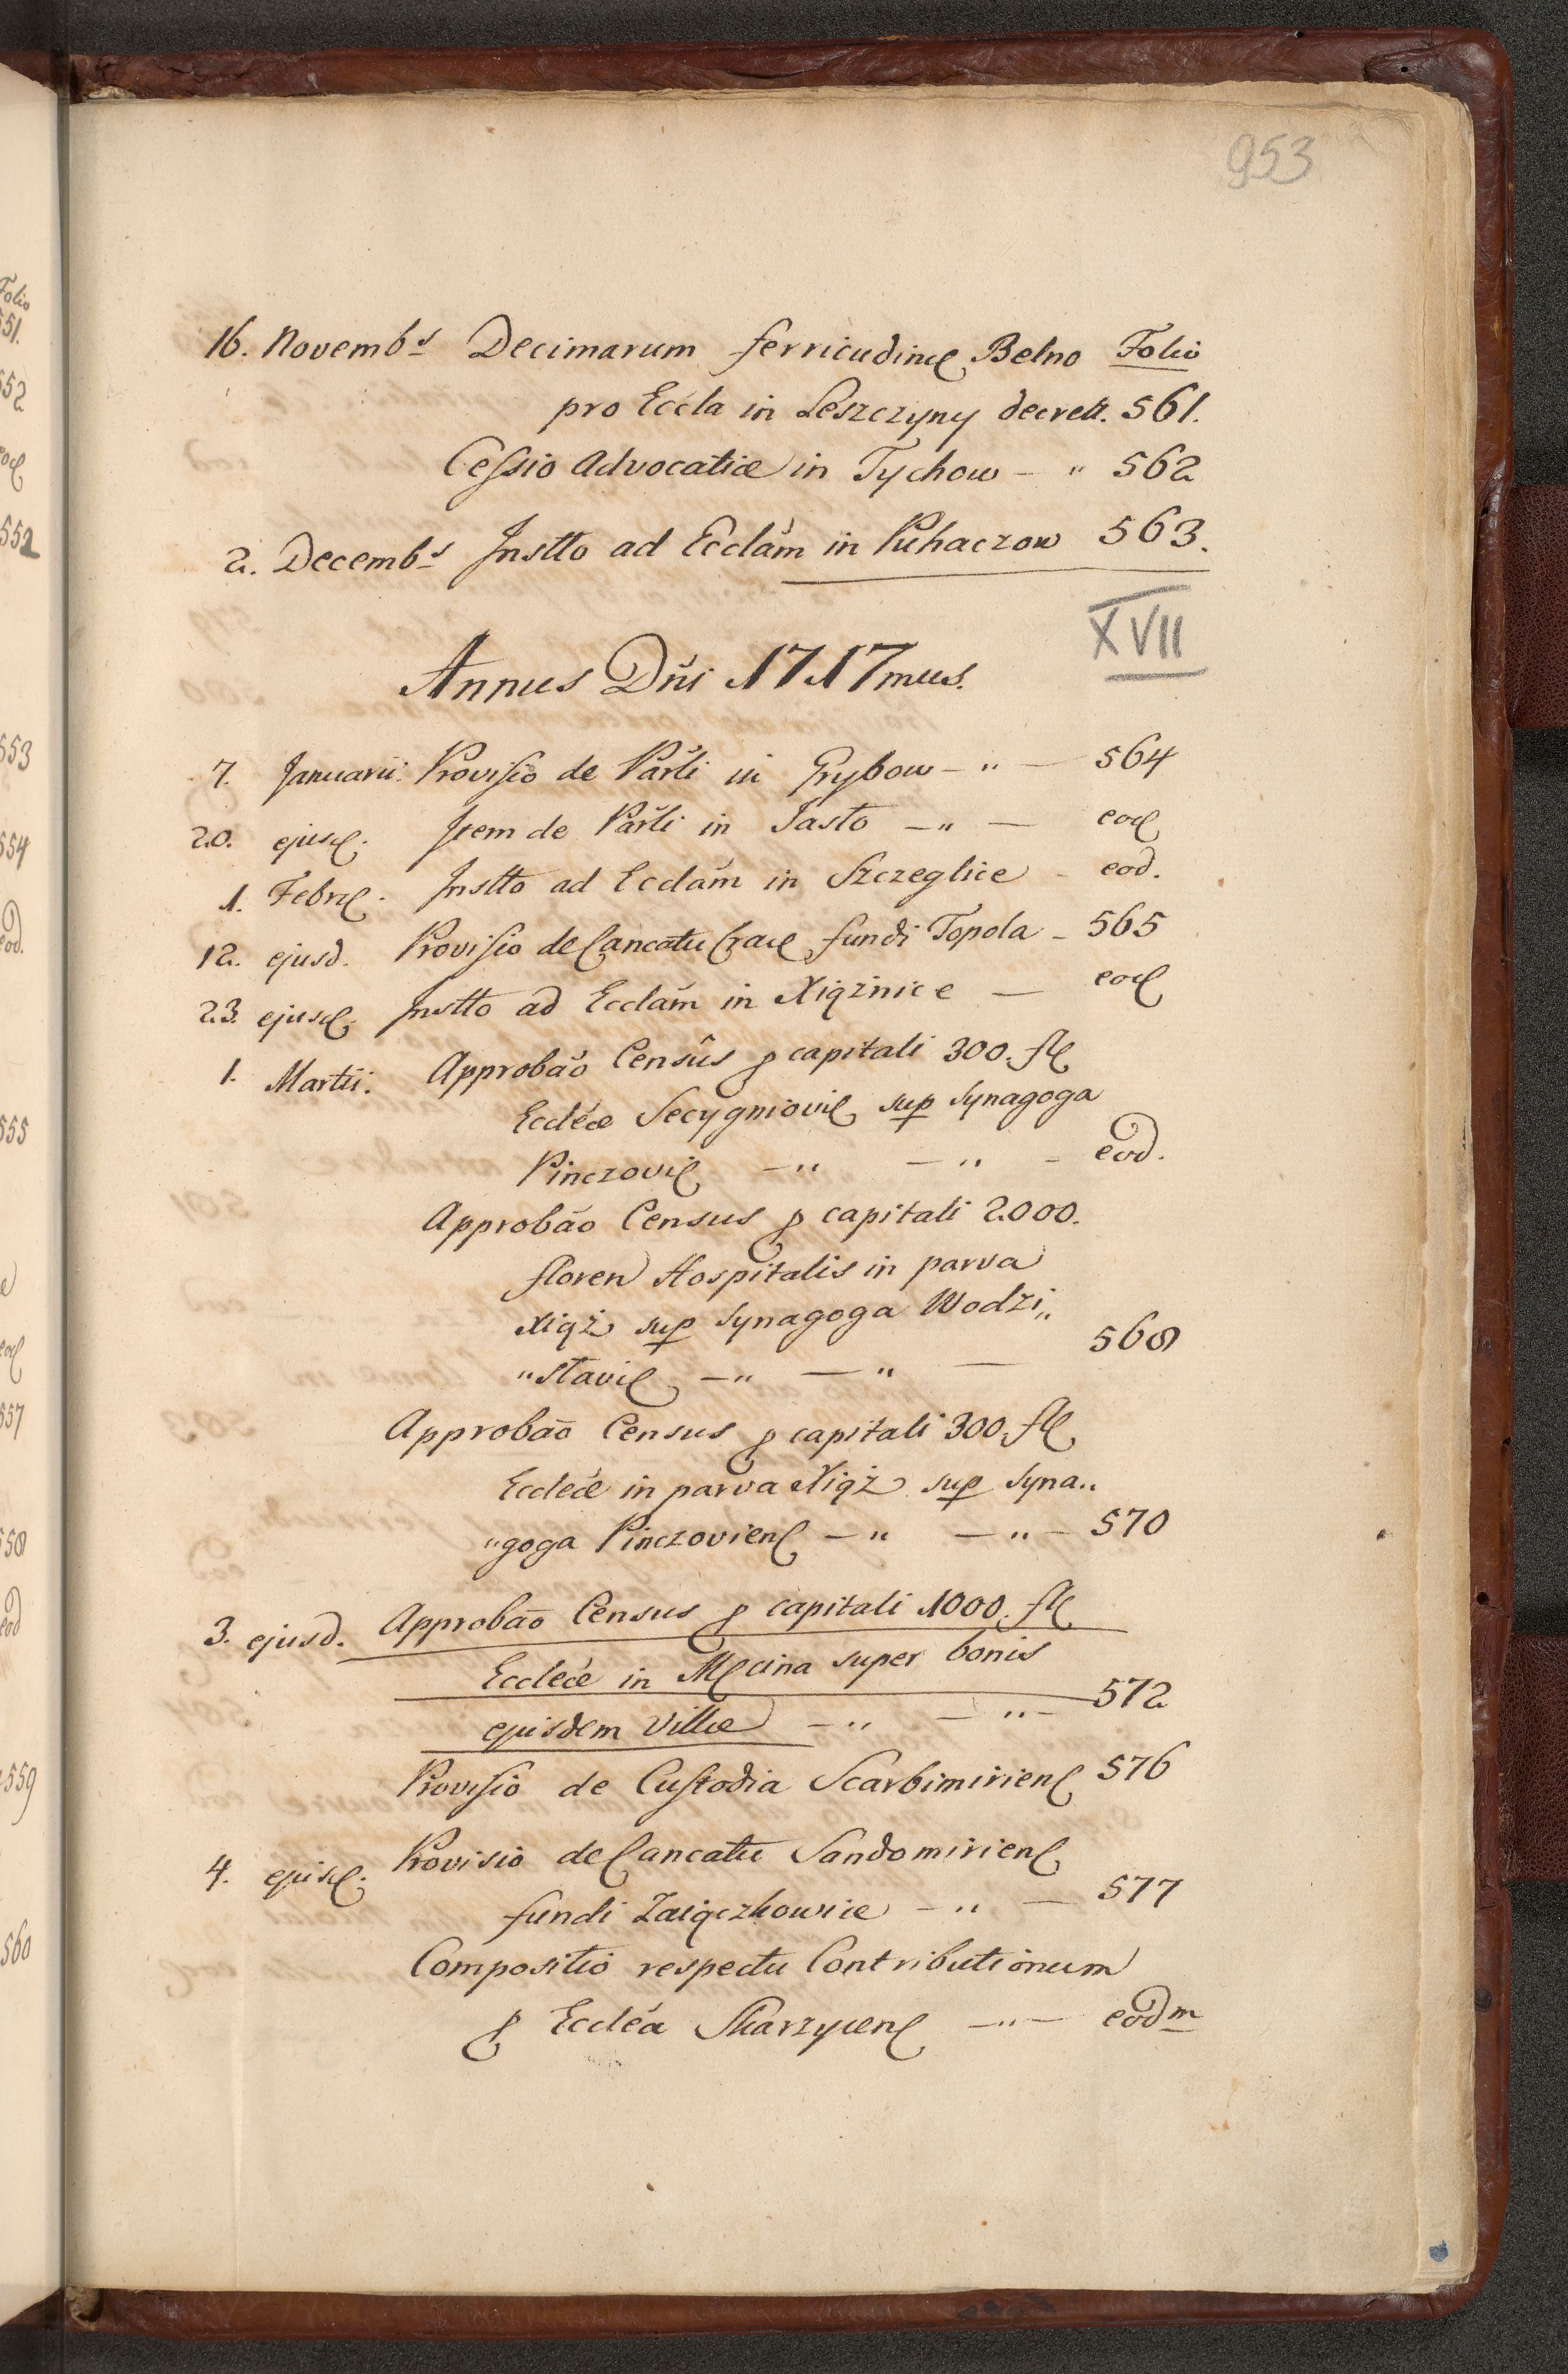 953
16. Novemb<sup>s</sup> Decimarum ferricudinꝭ Belno Folio
pro Eccla in Leszczyny decrett. 561.
Cessio Advocatiæ in Tychow - " 562
2. Decemb<sup>s</sup> Instto ad Ecclãm in Puhaczow 563.
XVII
Annus Dñi 1717mus.
7. Januarii. Provisio de Parli in Grybow - " - 564
20. ejusꝭ. Item de Parli in Jasło - " - eoꝭ
1. Febrꝭ. Instto ad Ecclãm in Szczeglice - eod.
12. ejusd. Provisio de Cancatu Cracꝭ fundi Topola - 565
23. ejusꝭ. Instto ad Ecclãm in Xiążnice - eoꝭ
1. Martii. Approbão Censûs ꝑ capitali 300. flꝭ
Eccleæ Secygnioviꝭ sup Synagoga
Pinczoviꝭ - " - " - eod.
Approbão Census ꝑ capitali 2000.
floren Hospitalis in parva
Xiąż sup Synagoga Wodzi„
"slaviꝭ - " - " - 568
Approbão Census ꝑ capitali 300. flꝭ
Eccleæ in parva Xiąż sup Syna„
"goga Pinczovienꝭ - " - " - 570
3. ejusd. Approbão Census ꝑ capitali 1000. flꝭ
Eccleæ in Mꝭcina super bonis
ejusdem Villæ - " - " - 572
Provisio de Custodia Scarbimirienꝭ 576
4. ejusꝭ. Provisio de Cancatu Sandomirienꝭ
fundi Zaiączkowice - " - 577
Compositio respectu Contributionum
ꝑ Eccléa Skarzycenꝭ - " - eod<sup>m</sup>